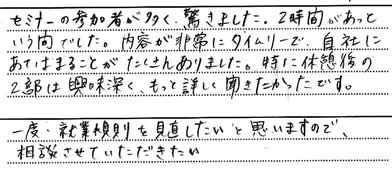 セミナーの参加者が多く、驚きました。2時間があっと
いう間でした。内容が非常にタイムリーで、自社に
あてはまることがたくさんありました。特に休憩後の
2部は興味深く、もっと詳しく聞きたかったです。
一度、就業規則を見直したいと思いますので、
相談させていただきたい